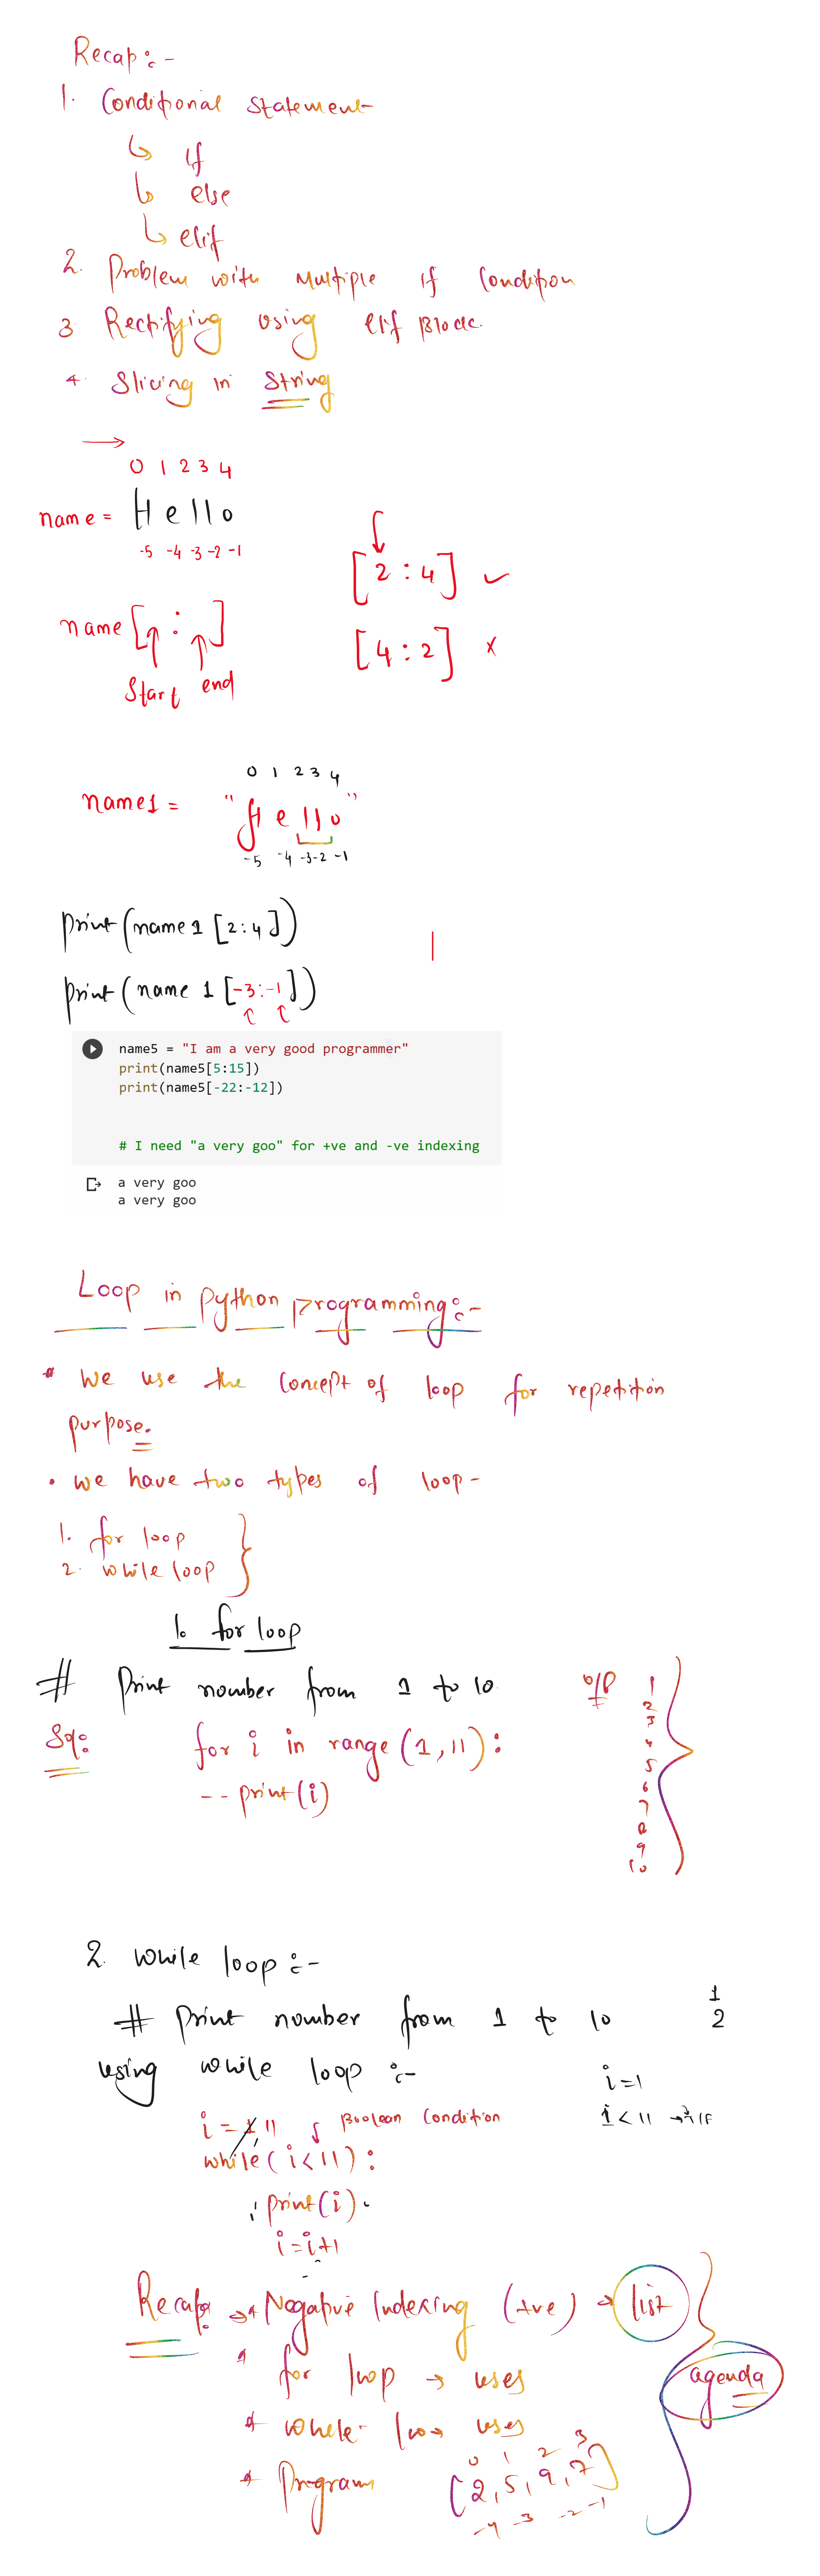 Recap:-
1. Conditional Statement
↳ if
↳ else
↳ elif
2. Problem with Multiple if Condition
3 Rectifying using elif Block.
4. Slicing in String
→
0 1 2 3 4
name = Hello
-5 -4 -3 -2 -1
[2:4] ✓
name [ : ]
[4:2] x
Start end
0 1 2 3 4
name1 = "Hello"
-5 -4 -3 -2 -1
print(name1[2:4])
print(name1[-3:-1])
name5 = "I am a very good programmer"
print(name5[5:15])
print(name5[-22:-12])
# I need "a very goo" for +ve and -ve indexing
a very goo
a very goo
Loop in python programming:-
* We use the Concept of loop for repetition
purpose.
• we have two types of loop-
1. for loop
2. while loop
1. for loop
# Print number from 1 to 10.
o/p
1
2
3
4
5
6
7
8
9
10
for i in range(1,11):
-- print(i)
2. while loop:-
# print number from 1 to 10
1
2
using while loop:-
i=1
i<11
i = 11
Boolean Condition
while(i<11):
print(i).
i=i+1
Recap: → * Negative Indexing (+ve) → list
* for loop → uses
agenda
* while uses
* Program
0 1 2 3
[2,5,9,7]
-4 -3 -2 -1